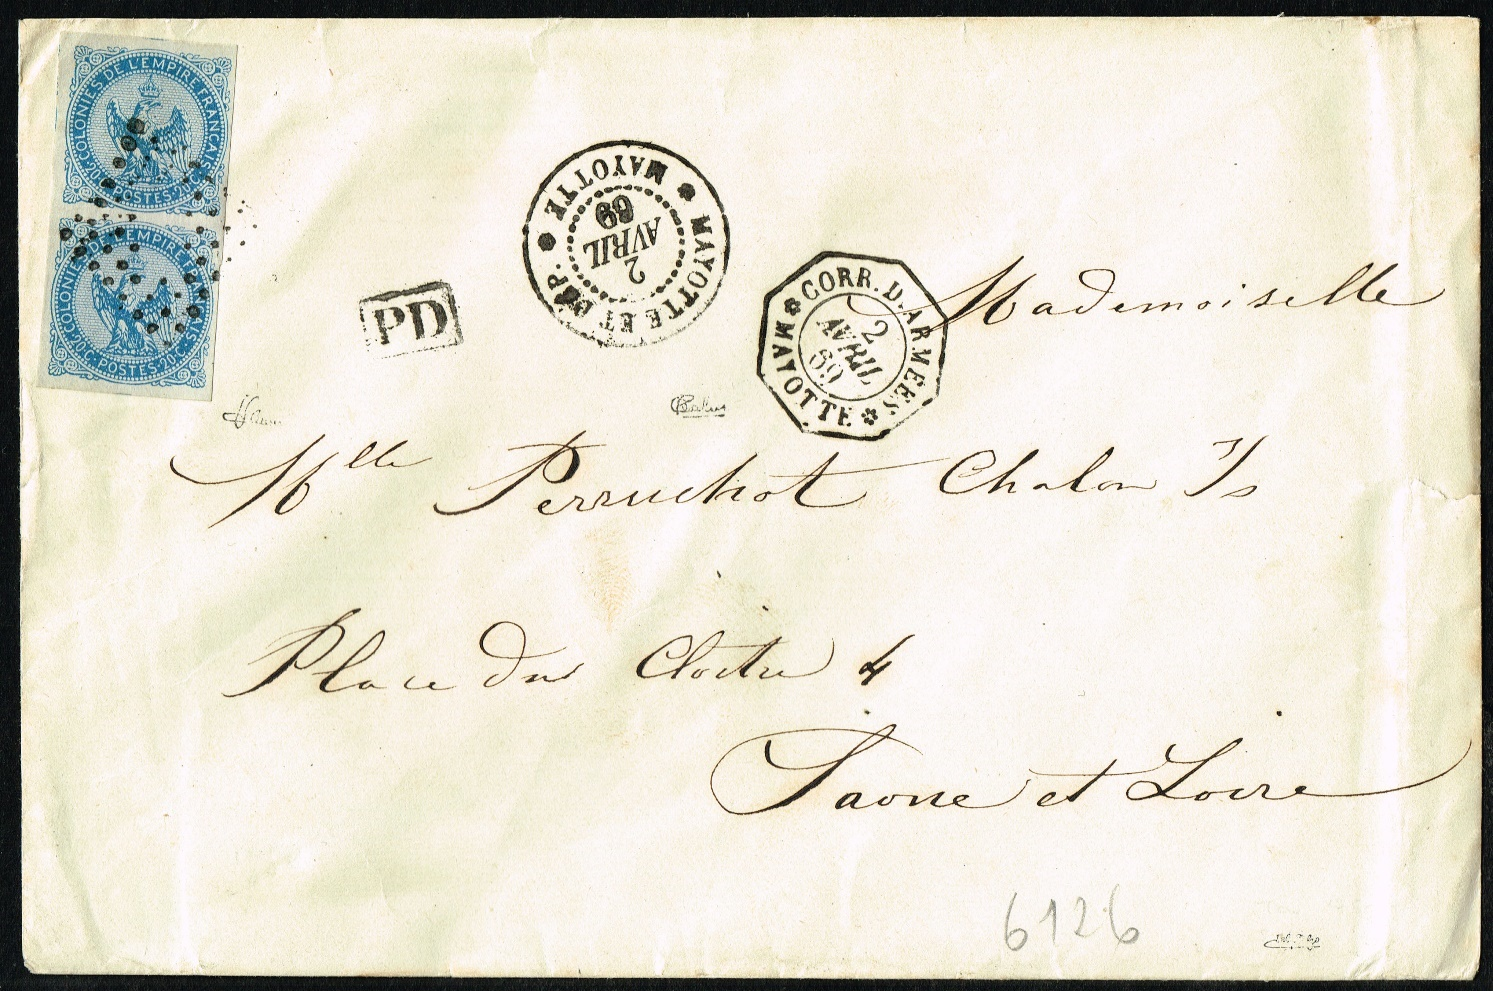 COLONIES DE L'EMPIRE FRANÇAIS
20C. POSTES 20C.
COLONIES DE L'EMPIRE FRANÇAIS
20.C. POSTES 20C.
PD
MAYOTTE ET DÉP.
MAYOTTE
2
AVRIL
69
CORR. D. ARMEES
MAYOTTE
2
AVRIL
69
Mademoiselle
Mlle Perruchot Chalon s/s
Place du Cloitre 4
Saone et Loire
6126